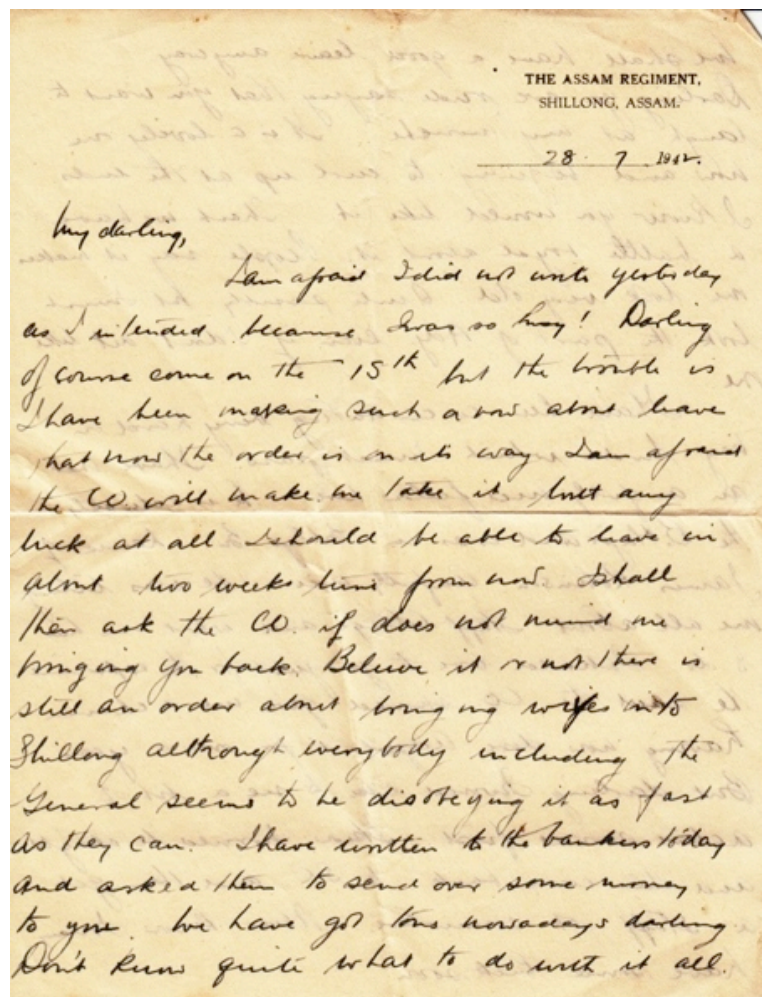 THE ASSAM REGIMENT,
SHILLONG, ASSAM.
28 7 1942.
My darling,
I am afraid I did not write yesterday
as I intended because I was so busy! Darling
of course come on the 15th but the trouble is
I have been making such a row about leave
that now the order is on its way I am afraid
the CO. will make me take it with any
luck at all I should be able to leave in
about two weeks time from now I shall
then ask the CO. if does not mind me
bringing you back. Believe it or not there is
still an order about bringing wifes into
Shillong although everybody including the
General seems to be disobeying it as fast
as they can. I have written to the bankers today
and asked them to send over some money
to you. We have got tons nowadays darling
Don't know quite what to do with it all.